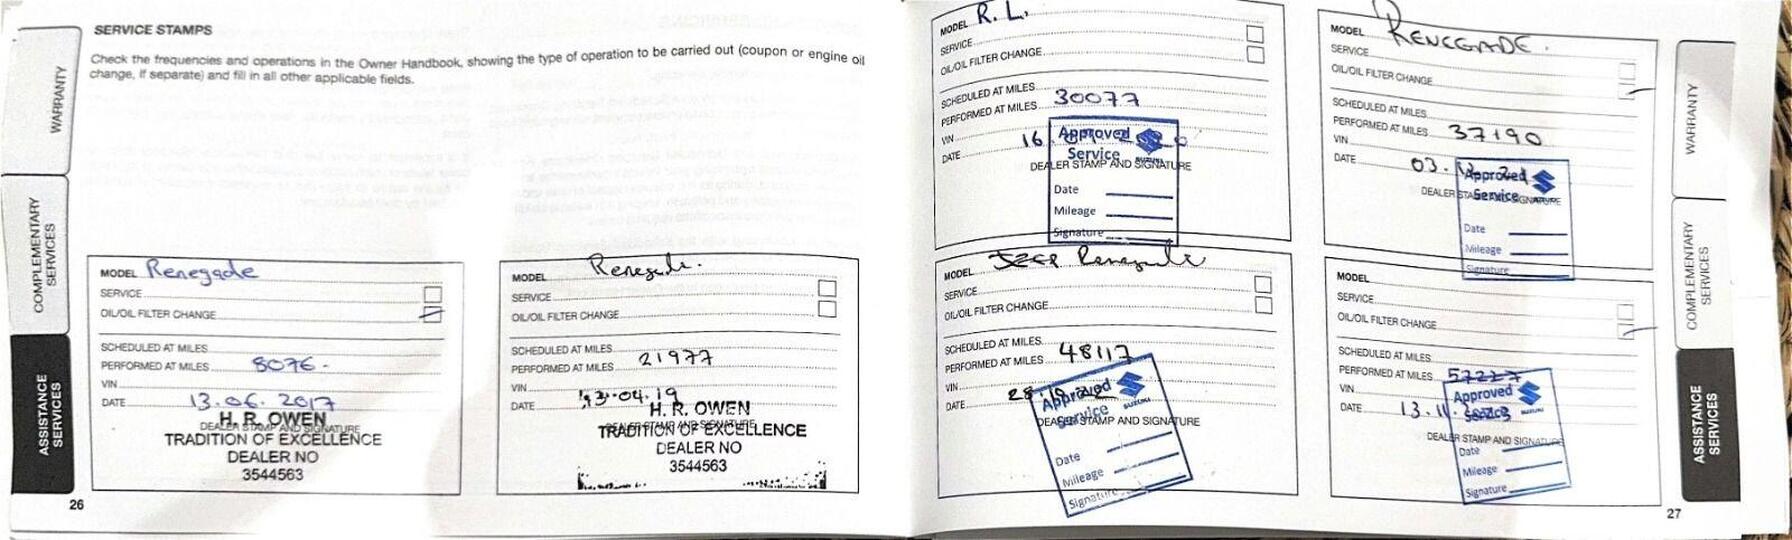 SERVICE STAMPS
Check the frequencies and operations in the Owner Handbook, showing the type of operation to be carried out (coupon or engine oil
change, if separate) and fill in all other applicable fields.
WARRANTY
COMPLEMENTARY
SERVICES
ASSISTANCE
SERVICES
MODEL Renegade
SERVICE
OIL/OIL FILTER CHANGE
SCHEDULED AT MILES
PERFORMED AT MILES 8076-
VIN
DATE 13.06.2017
DEALER STAMP AND SIGNATURE
H. R. OWEN
TRADITION OF EXCELLENCE
DEALER NO
3544563
MODEL Renegade.
SERVICE
OIL/OIL FILTER CHANGE
SCHEDULED AT MILES
PERFORMED AT MILES 21977
VIN
DATE 13.04.19
H. R. OWEN
DEALER STAMP AND SIGNATURE
TRADITION OF EXCELLENCE
DEALER NO
3544563
26
MODEL R. L.
SERVICE
OIL/OIL FILTER CHANGE
SCHEDULED AT MILES
PERFORMED AT MILES 30077
VIN
DATE 16.
DEALER STAMP AND SIGNATURE
Approved
Service
SUZUKI
Date
Mileage
Signature
MODEL RENEGADE.
SERVICE
OIL/OIL FILTER CHANGE
SCHEDULED AT MILES
PERFORMED AT MILES 37190
VIN
DATE 03.
DEALER STAMP AND SIGNATURE
Approved
Service
Date
Mileage
Signature
MODEL Jeep Renegade
SERVICE
OIL/OIL FILTER CHANGE
SCHEDULED AT MILES
PERFORMED AT MILES 48117
VIN
DATE 28.
DEALER STAMP AND SIGNATURE
Approved
Service
SUZUKI
Date
Mileage
Signature
MODEL
SERVICE
OIL/OIL FILTER CHANGE
SCHEDULED AT MILES
PERFORMED AT MILES 57227
VIN
DATE 13.11.
DEALER STAMP AND SIGNATURE
Approved
Service
SUZUKI
Date
Mileage
Signature
WARRANTY
COMPLEMENTARY
SERVICES
ASSISTANCE
SERVICES
27